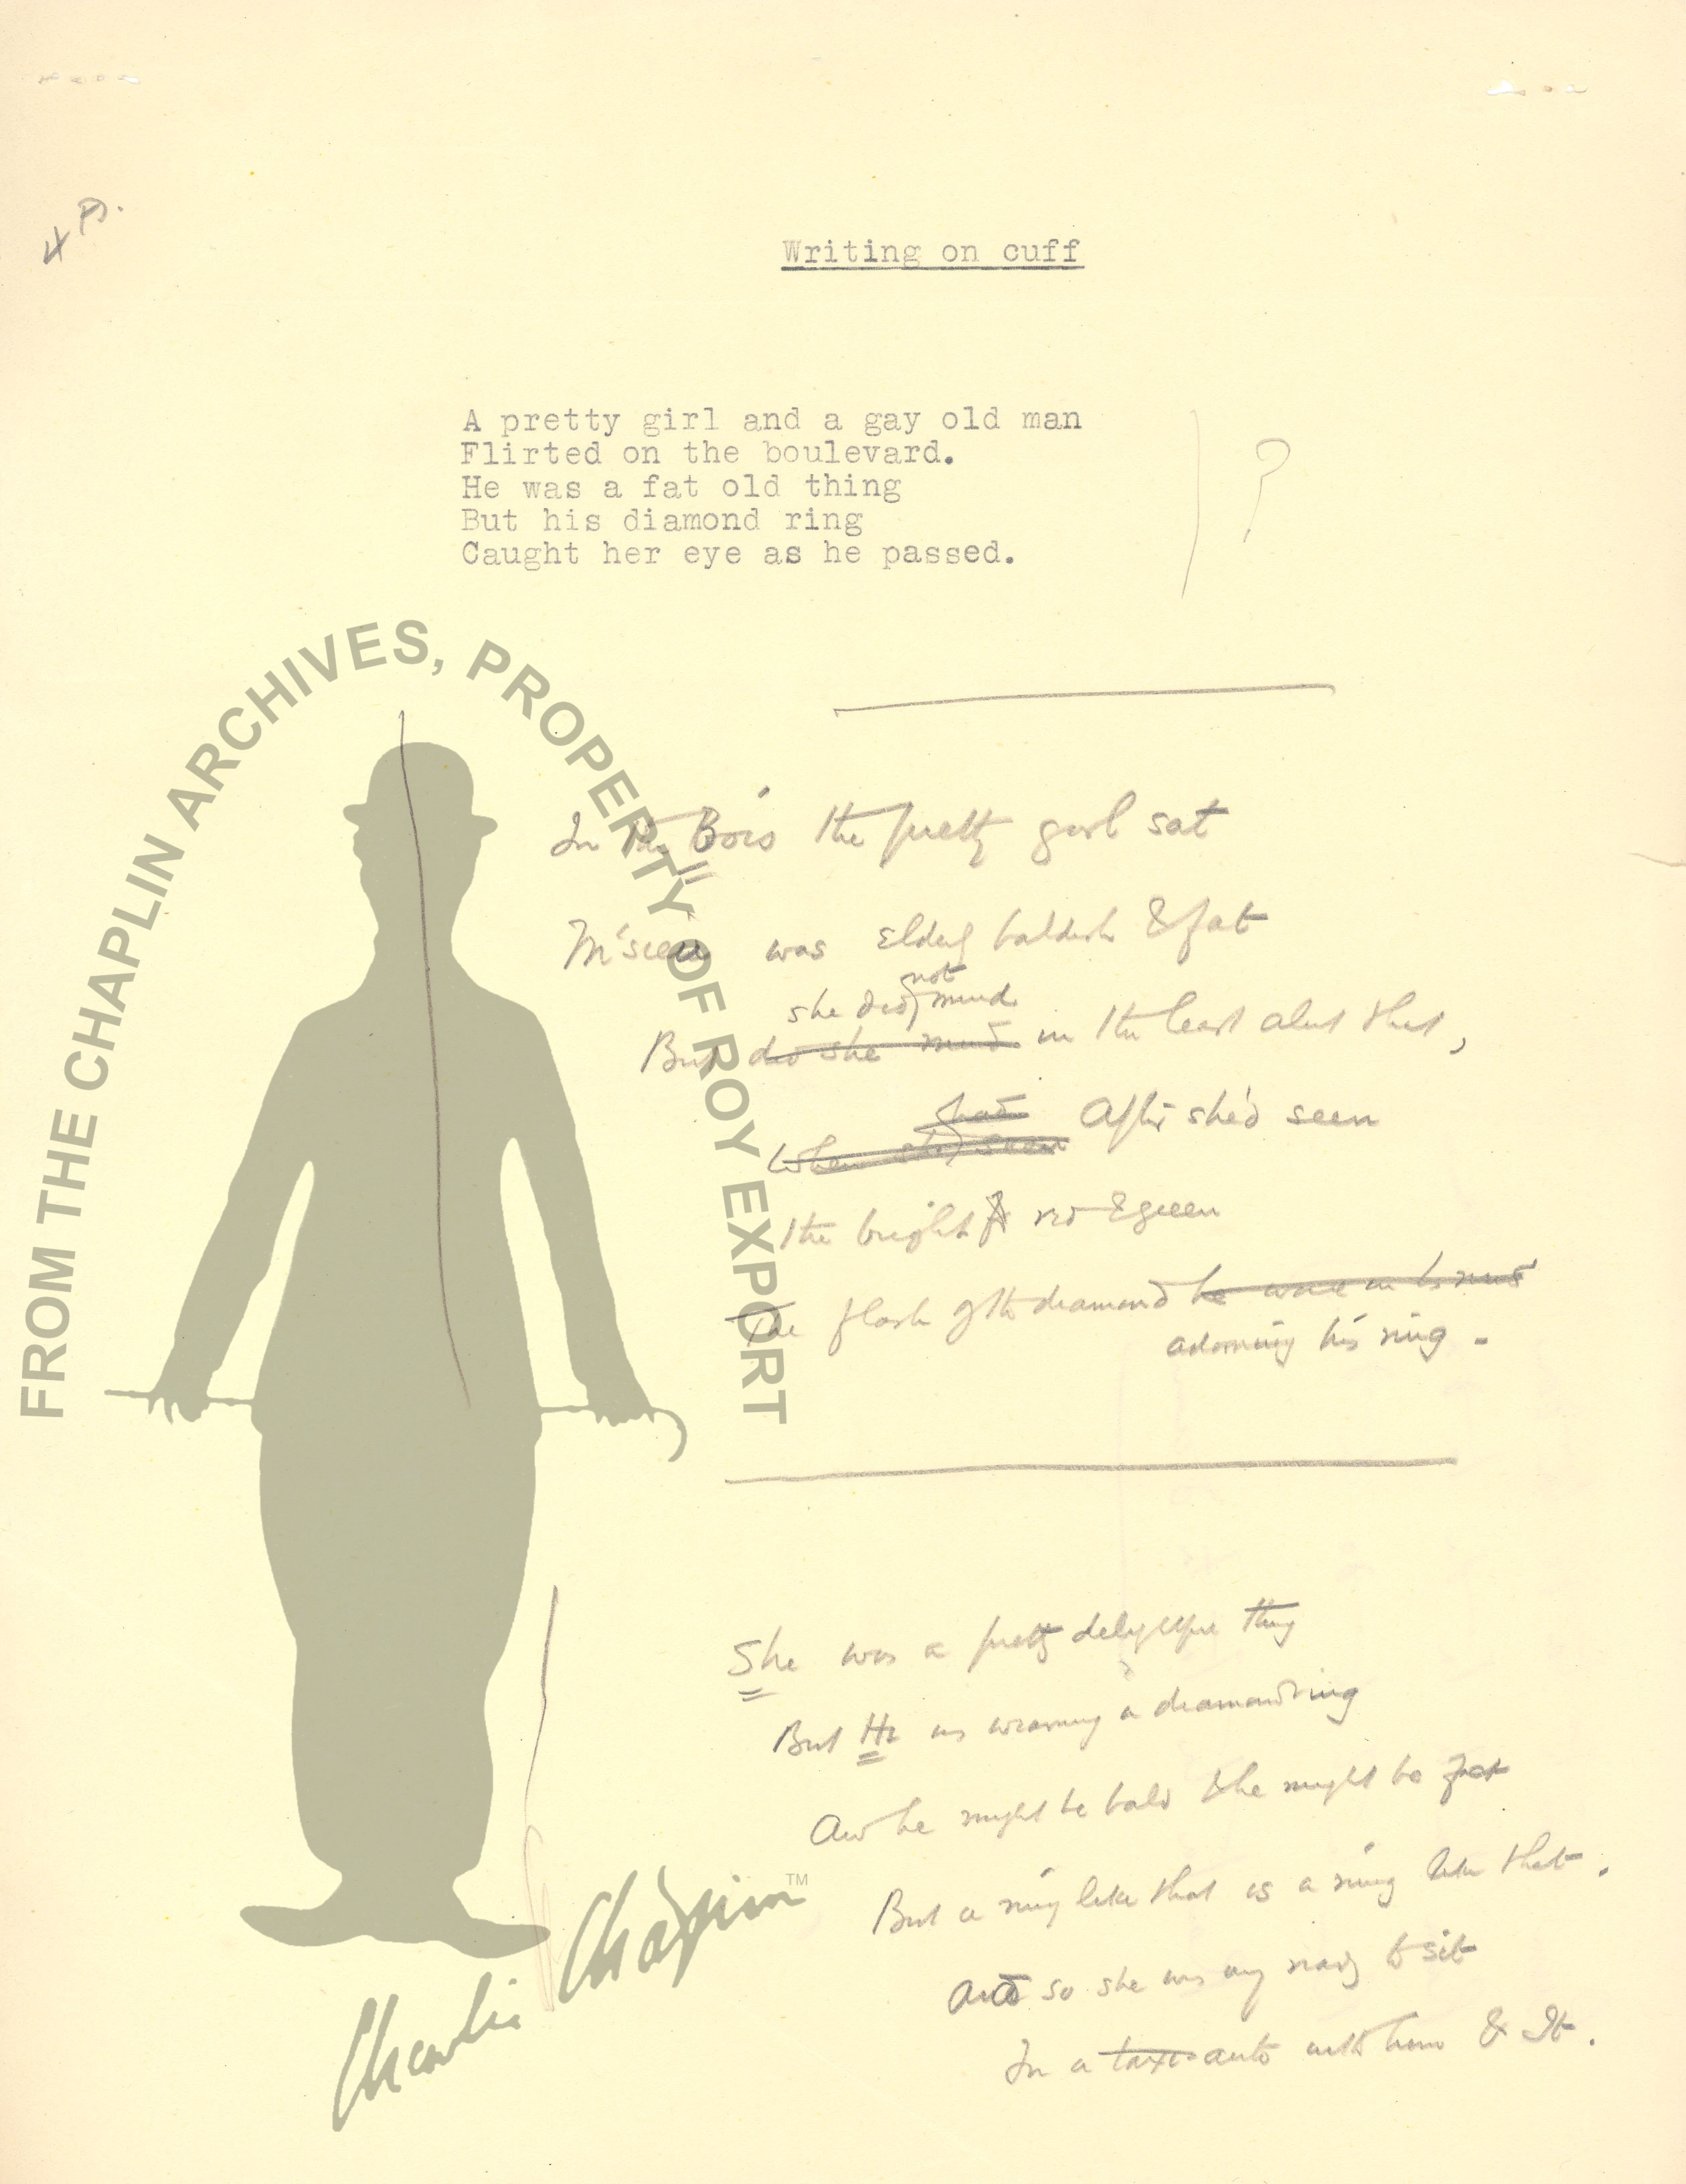 4 P.
Writing on cuff
A pretty girl and a gay old man
Flirted on the boulevard.
He was a fat old thing
But his diamond ring
Caught her eye as he passed.
?
In the Bois the pretty girl sat
M'sieu was elderly baldish & fat
she did not mind
But do she mind in the least about that,
had
When she seen After she'd seen
the bright red & green
The flash of the diamond he wore in his
adorning his ring -
She was a pretty thing
But He was wearing a diamond ring
And he might be bald & he might be fat
But a ring like that is a ring like that.
And so she was very ready to sit
In a taxi auto with him & It.
FROM THE CHAPLIN ARCHIVES, PROPERTY OF ROY EXPORT
Charlie Chaplin TM